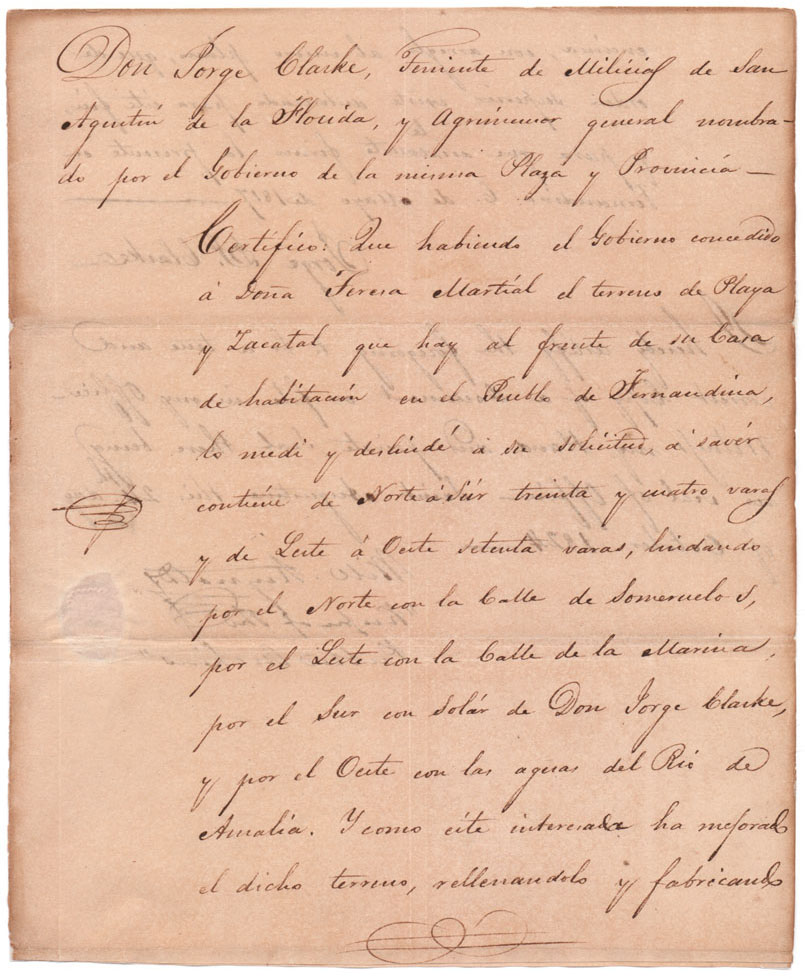 Don Jorge Clarke, Teniente de Milicias de San
Agustin de la Florida, y Agrimensor general nombra-
do por el Gobierno de la misma Plaza y Provincia —
Certifico: Que habiendo el Gobierno concedido
á Doña Teresa Martial el terreno de Playa
y Zacatal que hay al frente de su Casa
de habitación en el Pueblo de Fernandina,
lo medi y deslindé á su solicitud, á savér
contiene de Norte á Súr treinta y cuatro varas
y de Leste á Oeste setenta varas, lindando
por el Norte con la Calle de Someruelos,
por el Leste con la Calle de la Marina,
por el Sur con Solár de Don Jorge Clarke,
y por el Oeste con las aguas del Rio de
Amalia. Y como esta interesada ha mejorado
el dicho terreno, rellenandolo y fabricando